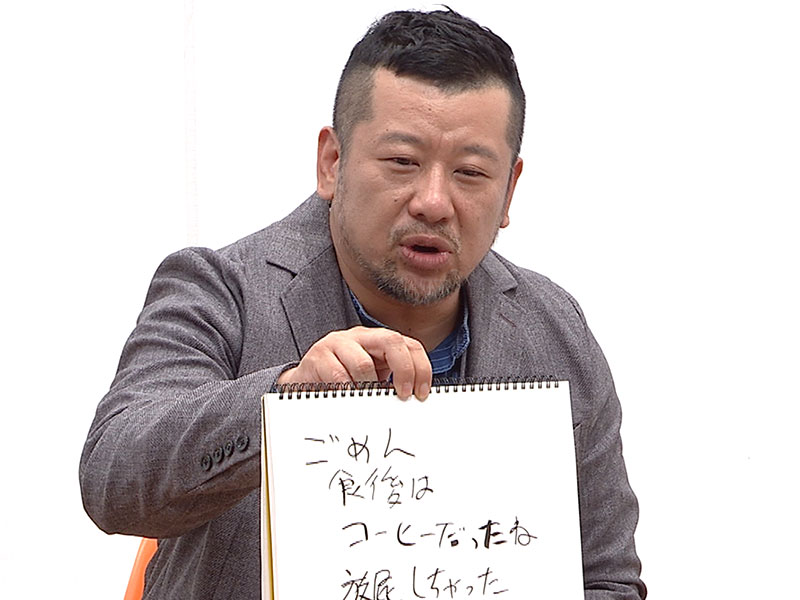 ごめん
食後は
コーヒーだったね
放尿しちゃった